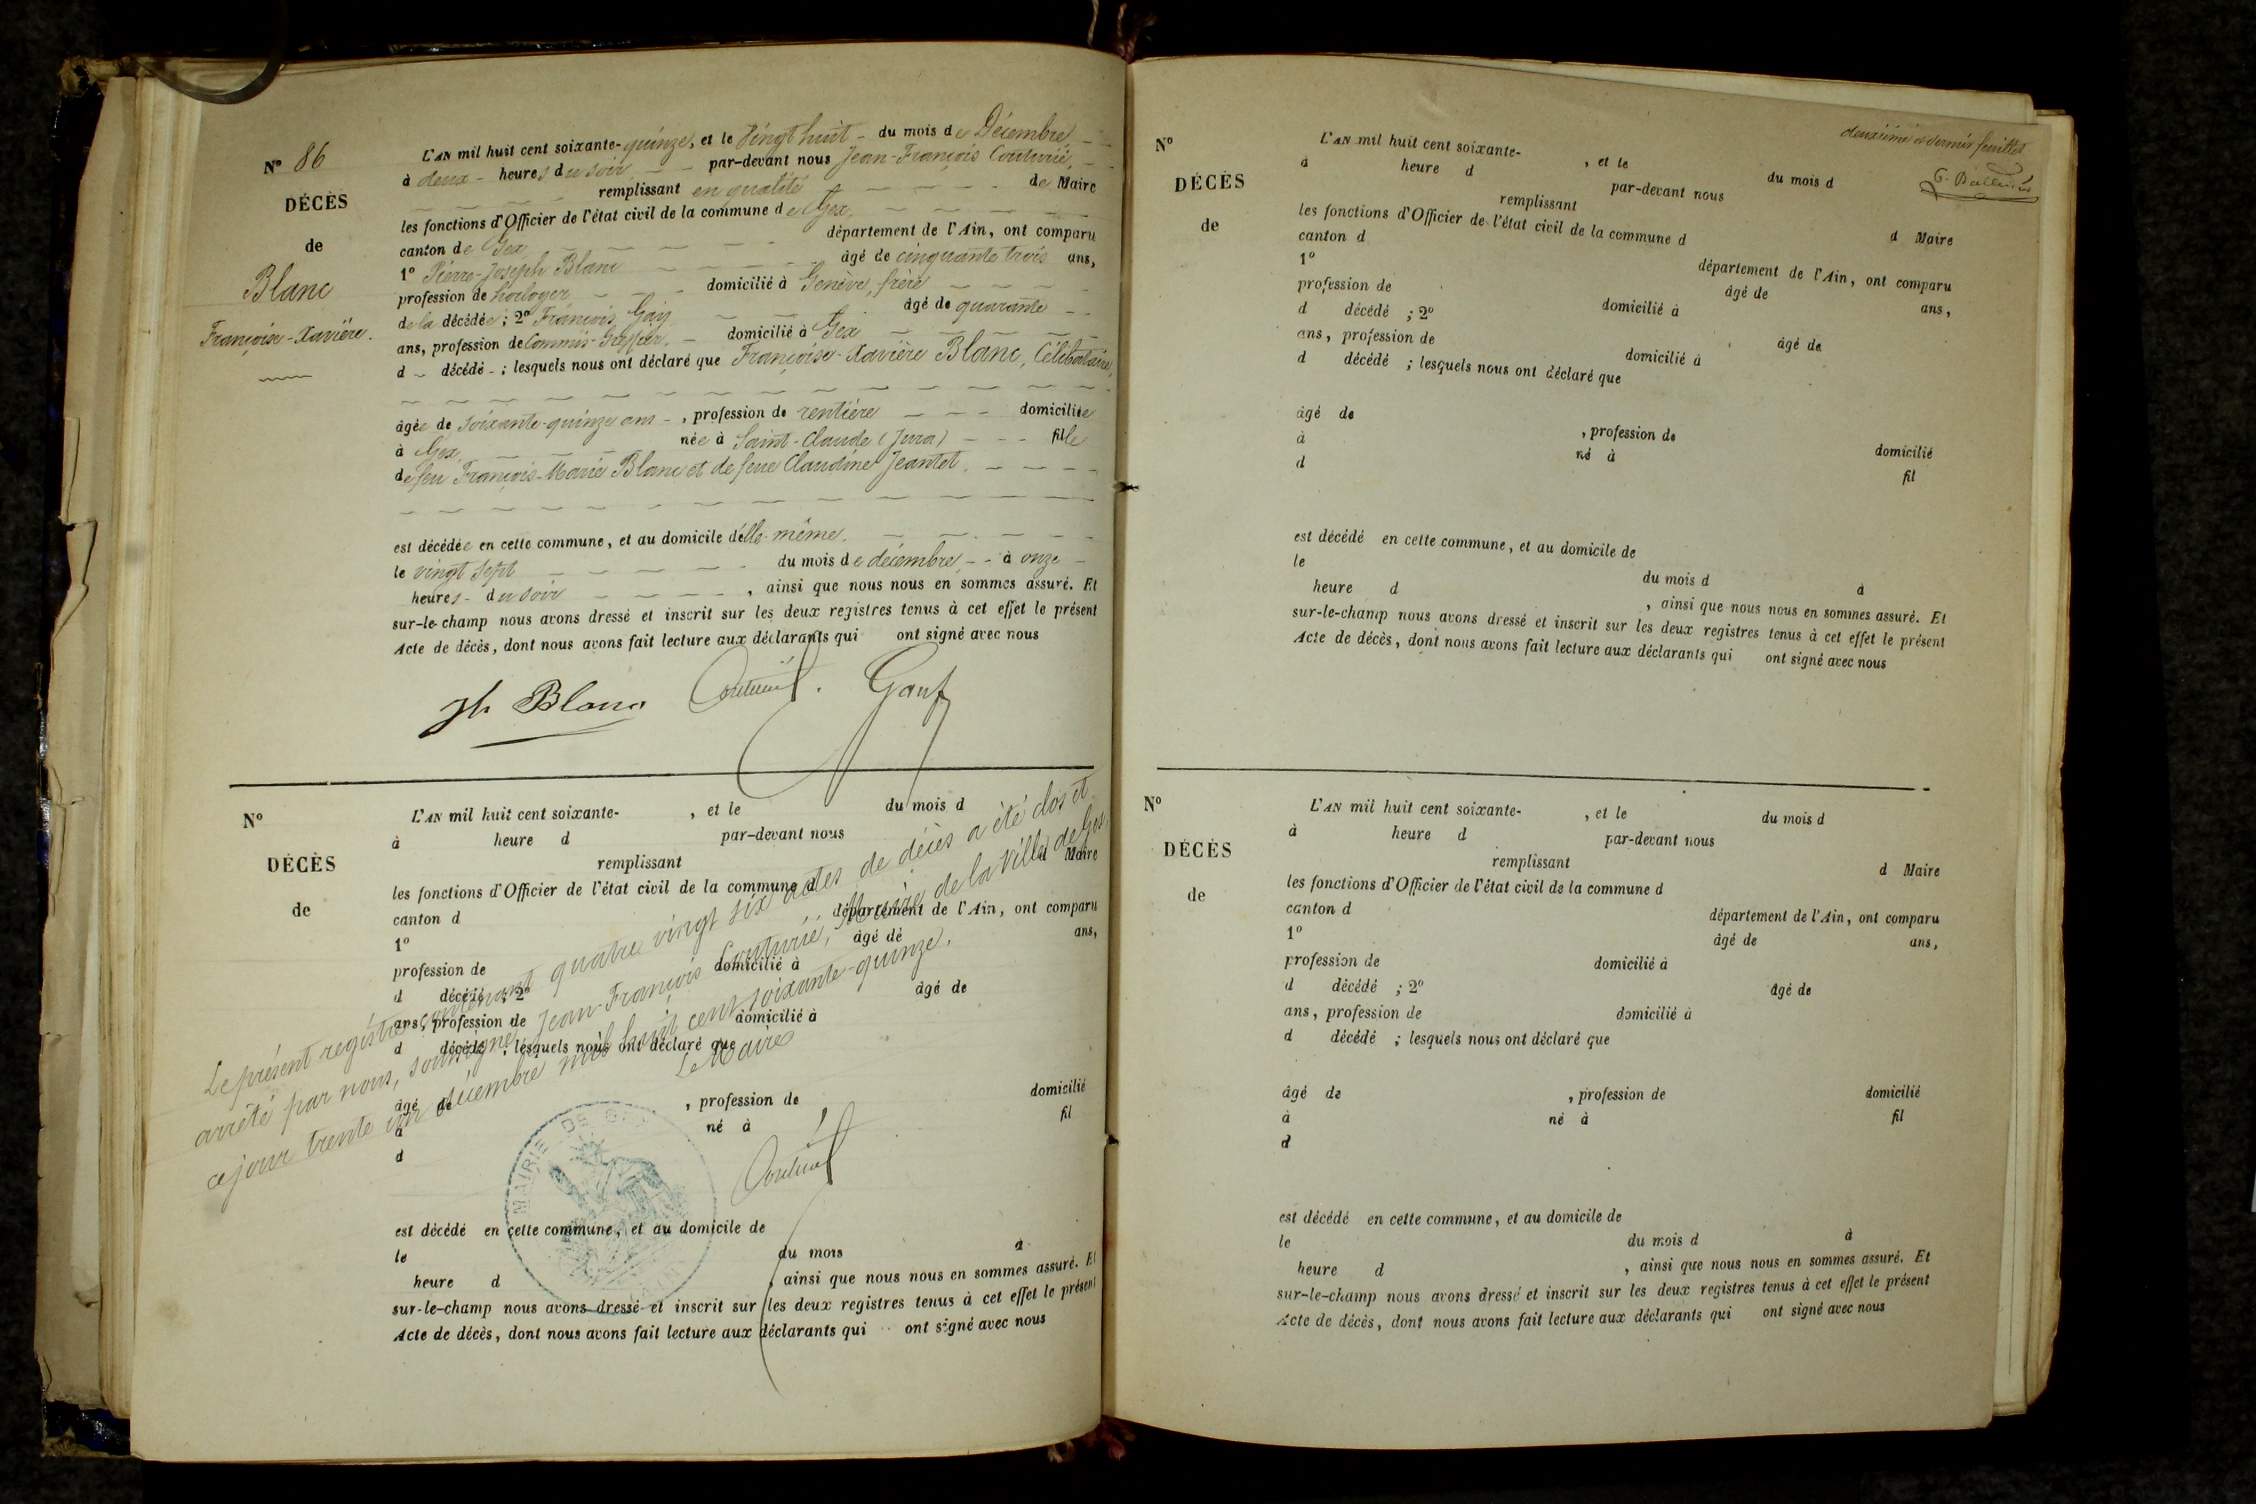 N° 86
DÉCÈS
de
Blanc
Françoise-Xavière.
L'AN mil huit cent soixante-quinze, et le Vingt huit du mois de Décembre
à deux heures du soir par-devant nous Jean-François Couturié,
remplissant en qualité de Maire
les fonctions d'Officier de l'état civil de la commune de Gex,
canton de Gex département de l'Ain, ont comparu
1° Pierre-Joseph Blanc âgé de cinquante trois ans,
profession de horloger domicilié à Genève, frère
de la décédée ; 2° François Gay âgé de quarante
ans, profession de Commis-Greffier, domicilié à Gex
d décédé ; lesquels nous ont déclaré que Françoise-Xavière Blanc, Célibataire,
âgée de soixante-quinze ans, profession de rentière domiciliée
à Gex, née à Saint-Claude (Jura) fille
de feu François-Marie Blanc et de feue Claudine Jeantet.
est décédée en cette commune, et au domicile d'elle-même.
le vingt sept du mois de décembre à onze
heures du soir , ainsi que nous nous en sommes assuré. Et
sur-le-champ nous avons dressé et inscrit sur les deux registres tenus à cet effet le présent
Acte de décès, dont nous avons fait lecture aux déclarants qui ont signé avec nous
Jh Blanc Couturié.
N°
DÉCÈS
de
L'AN mil huit cent soixante- , et le du mois d
à heure d par-devant nous
remplissant d Maire
les fonctions d'Officier de l'état civil de la commune d
canton d département de l'Ain, ont comparu
1° âgé de ans,
profession de domicilié à
d décédé ; 2° âgé de
ans, profession de domicilié à
d décédé ; lesquels nous ont déclaré que
âgé de , profession de domicilié
à né à fil
d
est décédé en cette commune, et au domicile de
le du mois à
heure d , ainsi que nous nous en sommes assuré. Et
sur-le-champ nous avons dressé et inscrit sur les deux registres tenus à cet effet le présent
Acte de décès, dont nous avons fait lecture aux déclarants qui ont signé avec nous
Le présent registre contenant quatre vingt six actes de décès a été clos et
arrêté par nous, soussigné, Jean-François Couturié, Maire de la Ville de Gex,
ce jour trente un décembre mil huit cent soixante-quinze.
Le Maire
Couturié
MAIRIE DE GEX
deuxième et dernier feuillet
N°
DÉCÈS
de
L'AN mil huit cent soixante- , et le du mois d
à heure d par-devant nous
remplissant d Maire
les fonctions d'Officier de l'état civil de la commune d
canton d département de l'Ain, ont comparu
1° âgé de ans,
profession de domicilié à
d décédé ; 2° âgé de
ans, profession de domicilié à
d décédé ; lesquels nous ont déclaré que
âgé de , profession de domicilié
à né à fil
d
est décédé en cette commune, et au domicile de
le du mois d à
heure d , ainsi que nous nous en sommes assuré. Et
sur-le-champ nous avons dressé et inscrit sur les deux registres tenus à cet effet le présent
Acte de décès, dont nous avons fait lecture aux déclarants qui ont signé avec nous
N°
DÉCÈS
de
L'AN mil huit cent soixante- , et le du mois d
à heure d par-devant nous
remplissant d Maire
les fonctions d'Officier de l'état civil de la commune d
canton d département de l'Ain, ont comparu
1° âgé de ans,
profession de domicilié à
d décédé ; 2° âgé de
ans, profession de domicilié à
d décédé ; lesquels nous ont déclaré que
âgé de , profession de domicilié
à né à fil
d
est décédé en cette commune, et au domicile de
le du mois d à
heure d , ainsi que nous nous en sommes assuré. Et
sur-le-champ nous avons dressé et inscrit sur les deux registres tenus à cet effet le présent
Acte de décès, dont nous avons fait lecture aux déclarants qui ont signé avec nous